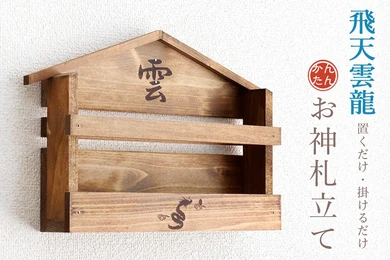 飛天雲龍
かんたん
置くだけ・掛けるだけ
お神札立て
雲